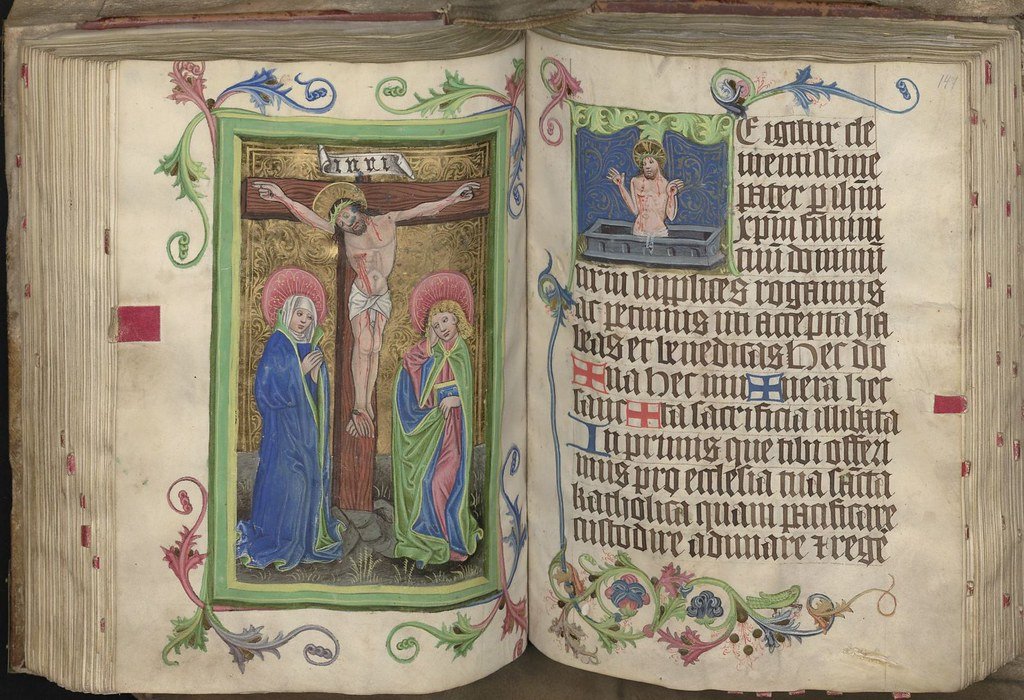 INRI
E igitur cle
mentissime
pater ꝑ ihm̄
xpm̄ filium
tuū dominū
nrm̄ supplices rogamus
ac petimus uti accepta ha
beas et benedicas Hec do
✠na hec mu✠nera hec
sanc✠ta sacrificia illibata
In primis que tibi offeri
mus pro ecclesia tua sc̄ta
katholica quam pacificare
custodire adunare ⁊ rege